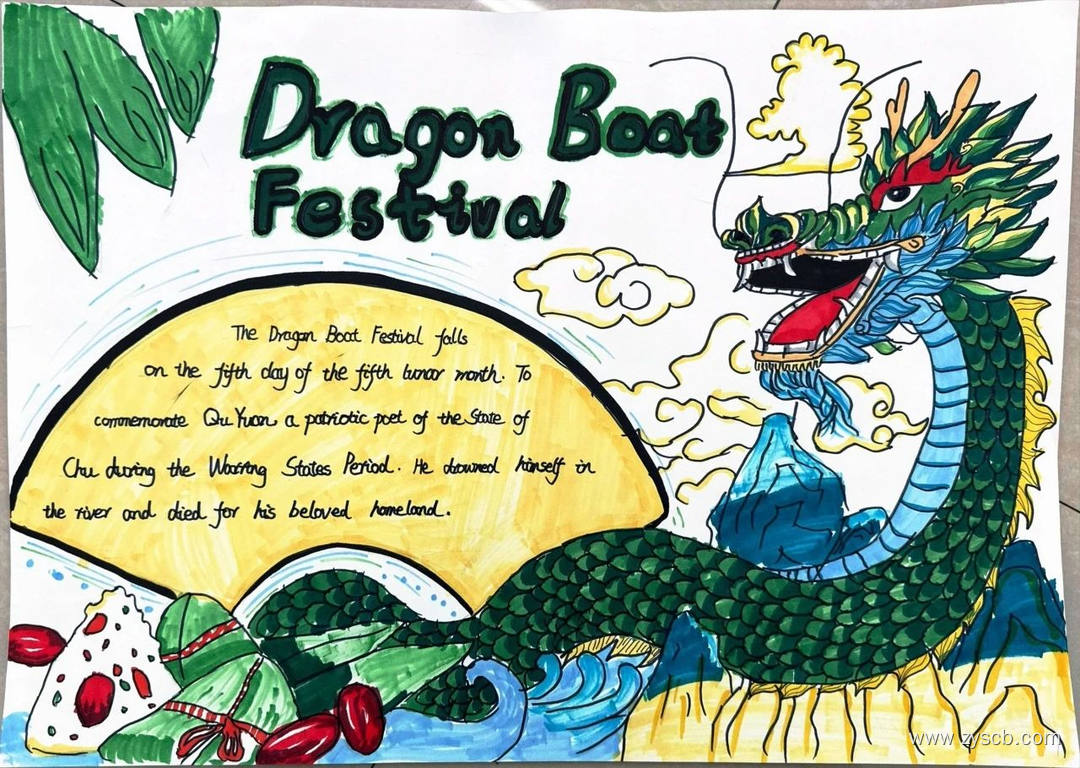 Dragon Boat
Festival
The Dragon Boat Festival falls
on the fifth day of the fifth lunar month. To
commemorate Qu Yuan a patriotic poet of the State of
Chu during the Warring States Period. He drowned himself in
the river and died for his beloved homeland.
www.zyscb.com